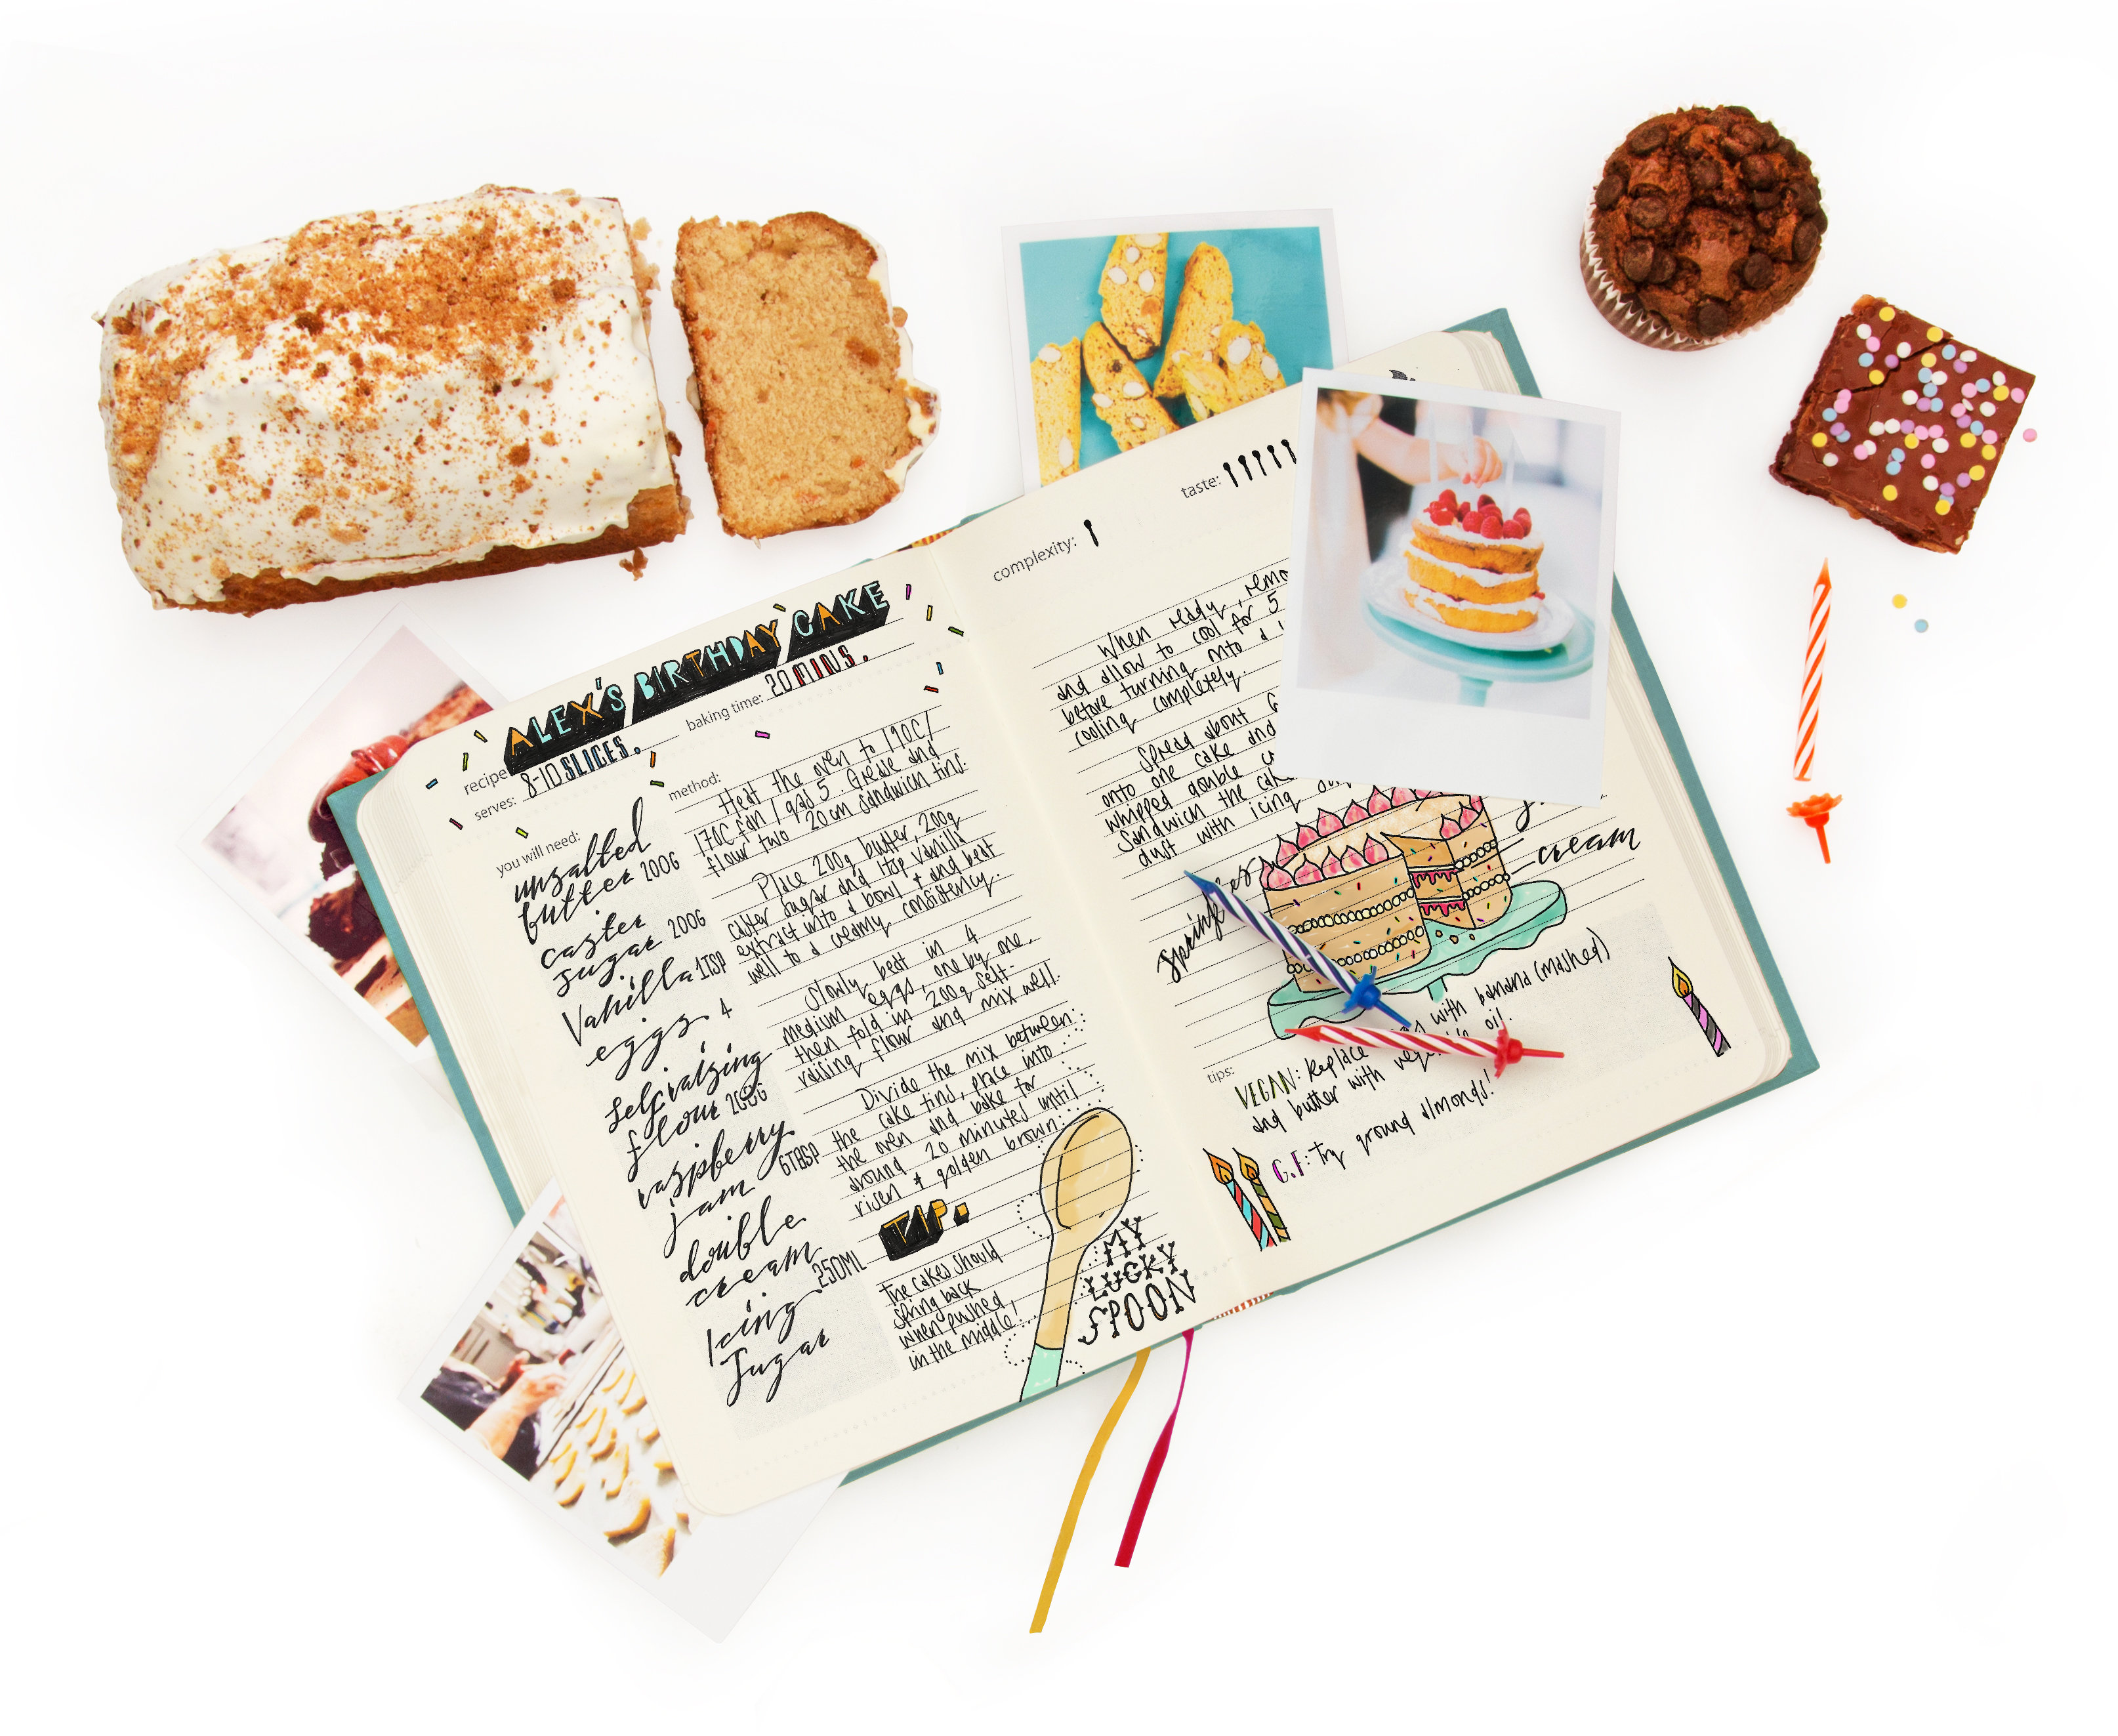 recipe ALEX'S BIRTHDAY CAKE
serves: 8-10 SLICES.
baking time: 20 MINS.
you will need:
unsalted
butter 200G
caster
sugar 200G
Vanilla 1TSP
eggs. 4
self raising
flour 200G
raspberry
jam 6TBSP
double
cream 250ML
Icing
Sugar
method:
Heat the oven to 190C/
170C fan / gas 5. Grease and
flour two 20cm sandwich tins.
Place 200g butter, 200g
caster sugar and 1tsp vanilla
extract into a bowl + and beat
well to a creamy consistency.
Slowly beat in 4
medium eggs, one by one,
then fold in 200g self-
raising flour and mix well.
Divide the mix between
the cake tins, place into
the oven and bake for
around 20 minutes until
risen + golden brown.
TIP.
The cakes should
spring back
when pushed
in the middle!
MY
LUCKY
SPOON
complexity:
taste:
When ready,
and allow to cool for 5
before turning onto a
cooling completely.
Spread about 6
onto one cake and
whipped double
Sandwich the
dust with icing
cream
tips:
VEGAN: Replace with banana (mashed)
and butter with oil.
G.F: Try ground almonds!